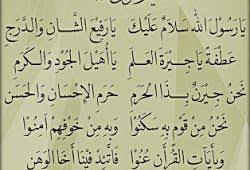 يَارَسُوْلَ اللهِ سَلَامٌ عَلَيْكَ يَارَفِيْعَ الشَّانِ وَالدَّرَجِ
عَطْفَةً يَاجِيْرَةَ الْعَلَمِ يَاأُهَيْلَ الْجُوْدِ وَالْكَرَمِ
نَحْنُ جِيْرَنٌ بِذَا الْحَرَمِ حَرَمِ الْإِحْسَانِ وَالْحَسَنِ
نَحْنُ مِنْ قَوْمٍ بِهِ سَكَنُوْا وَبِهِ مِنْ خَوْفِهِمْ اٰمَنُوْا
وَبِاٰيَاتِ الْقُرْاٰنِ عُنُوْا فَاتَّئِدْ فِيْنَا أَخَا الْوَهَنِ